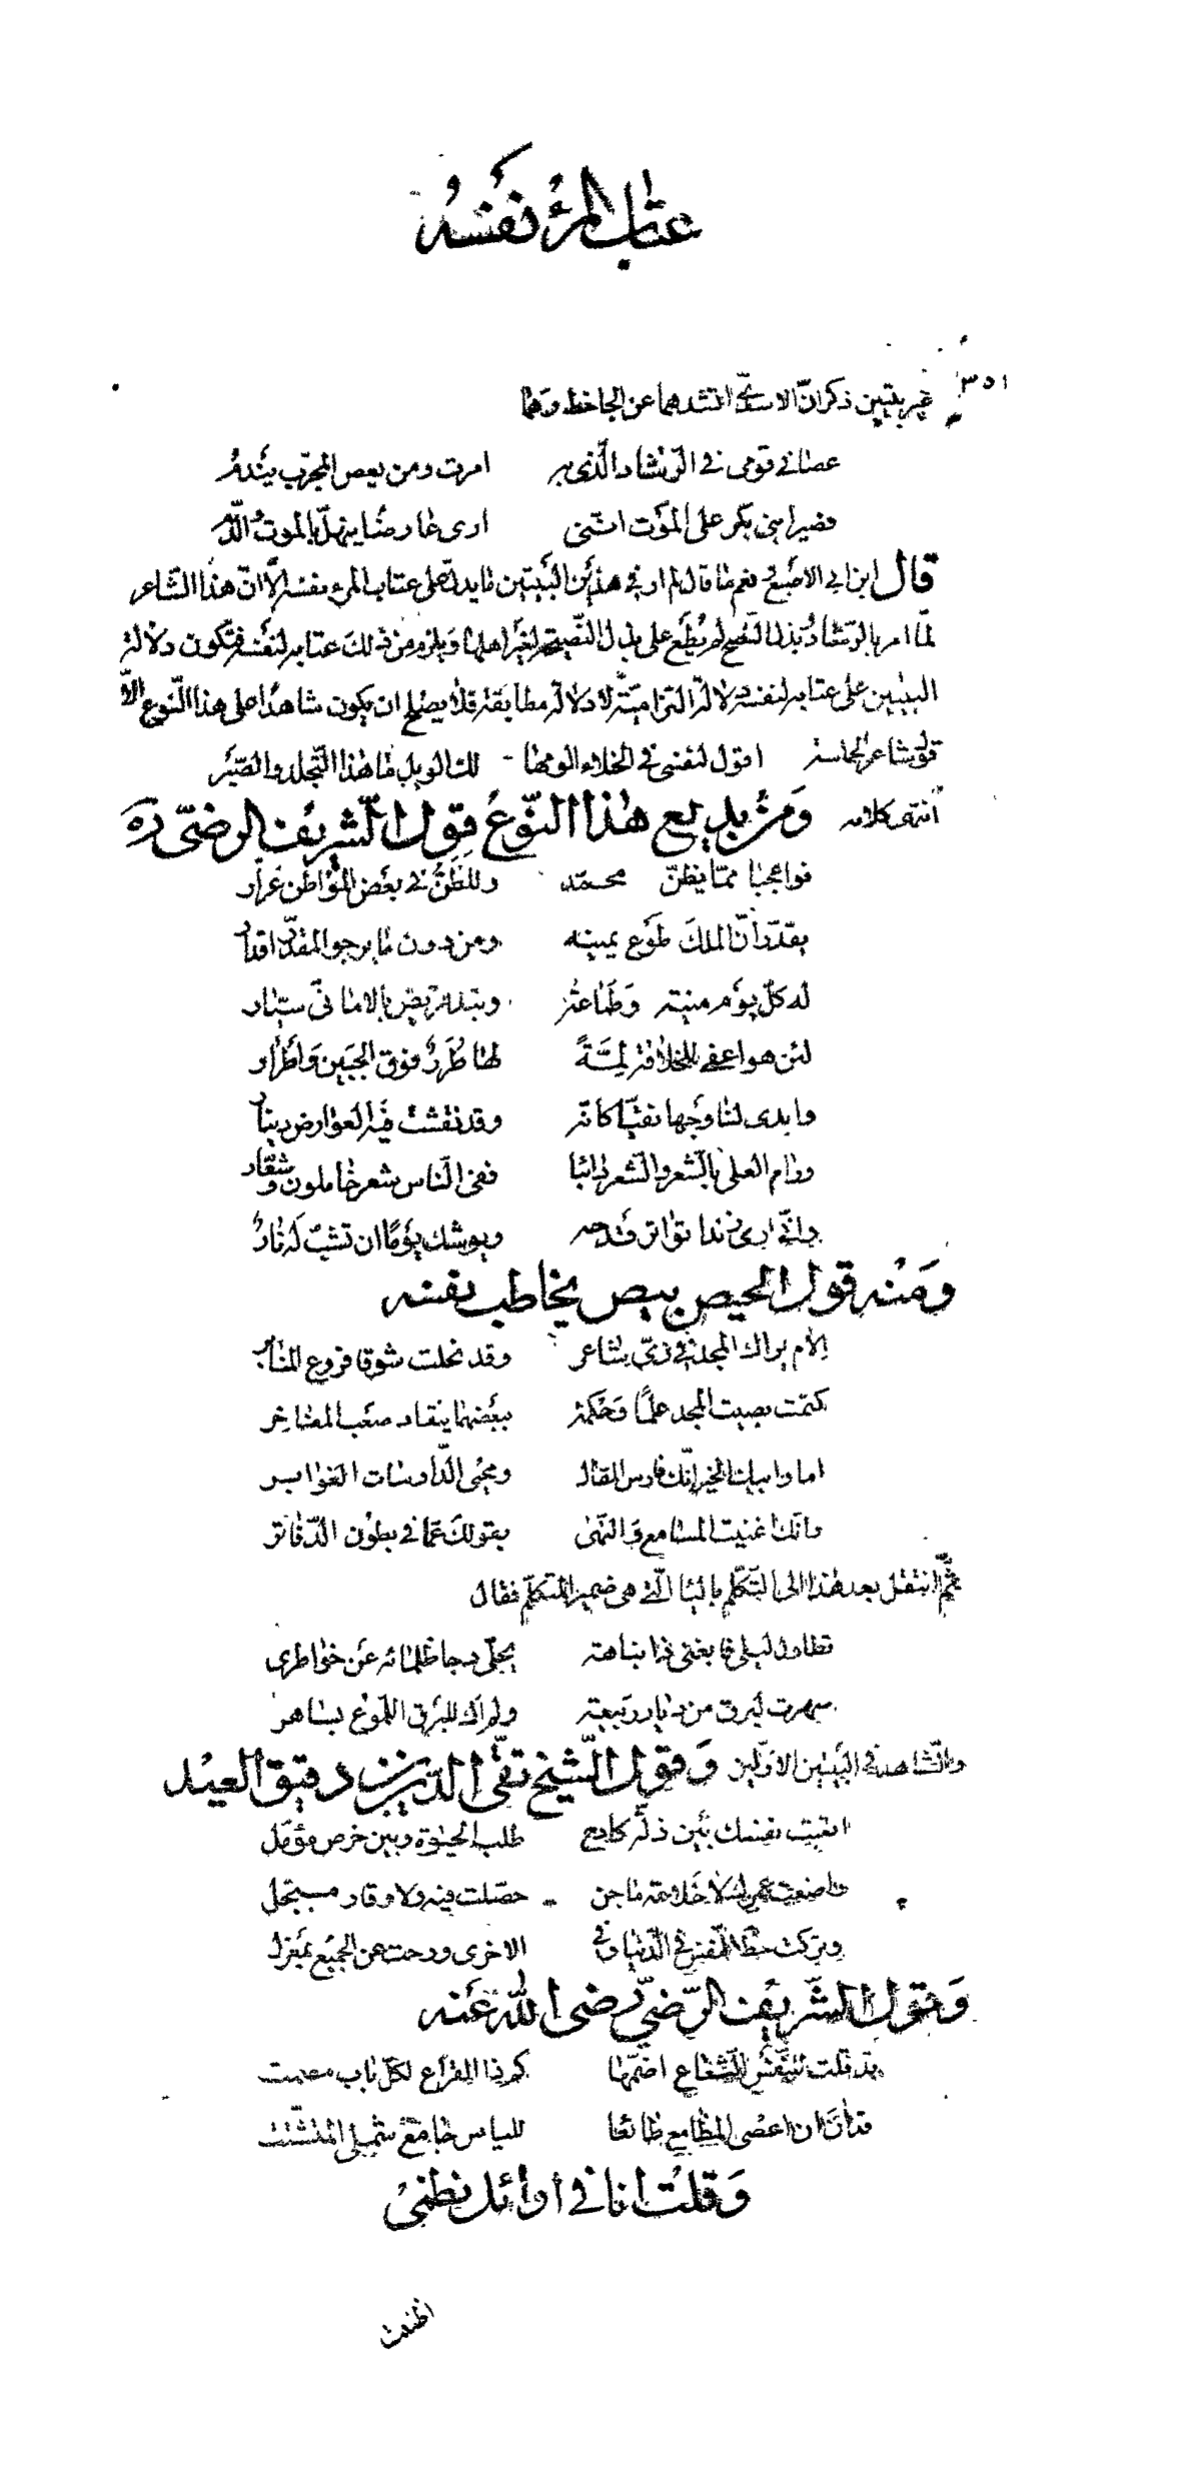 عتاب المرء نفسه
٣٥١
غير بيتين ذكر انّ الاسديّ انشدهما عن الجاحظ وهما
عصاني قومي في الرّشاد الّذي به امرت ومن يعص المجرّب يندم
فصبرا بني بكر على الموت انّني ارى عارضا ينهلّ بالموت والدّم
قال ابن ابي الاصبع نعم ما قال لم ار في هذين البيتين ما يدلّ على عتاب المرء نفسه الّا انّ هذا الشّاعر
لمّا امر بالرّشاد وبذل النّصح لم يطع على بذل النّصيحة لغير اهلها ويلزم من ذلك عتابه لنفسه فتكون دلالة
البيتين على عتابه لنفسه دلالة التزاميّة لا دلالة مطابقة فلا يصلح ان يكون شاهدا على هذا النّوع الّا
قول شاعر الحماسة اقول لنفسي في الخلاء الومها لك الويل ما هذا التّجلد والصّبر
انتهى كلامه ومن بديع هذا النّوع قول الشّريف الرضيّ ره
فواعجبا ممّا يظنّ محمّد وللظّنّ في بعض المواطن غرّار
يقدّر أنّ الملك طوع يمينه ومن دون ما يرجو المقدّر اقدار
له كلّ يوم منية وطماعة ونبذ قريض بالاماني سيّار
لئن هو اعفى للخلافة لمّة لها طرر فوق الجبين واطرار
وابدى لنا وجها نقيّا كانّه وقد نقشت فيه العوارض دينار
ورام العلى بالشّعر والشّعر دائبا ففي النّاس شعر خاملون وشعّار
وانّي ارى زندا تواتر قدحه ويوشك يوما ان تشبّ له نار
ومنه قول الحيص بيص يخاطب نفسه
إلام يراك المجد في زيّ شاعر وقد نحلت شوقا فروع المنابر
كتمت بصيت المجد علما وحكمة ببعضهما ينقاد صعب المفاخر
اما وابيك الخير انّك فارس المقال ومحيي الدّارسات الغوابر
وانّك اغنيت المسامع والنّهى بقولك عمّا في بطون الدّفاتر
ثمّ انتقل بعد هذا الى التّكلّم بالتا الّتي هي ضمير المتكلّم فقال
تطاول ليلي فابغني ذا نباهة يجلّي دجا ظلمائه عن خواطري
سهرت لبرق من ديار ربيعة ولم اك للبرق اللّموع بساهر
والشّاهد في البيتين الاوّلين وقول الشّيخ تقيّ الدّين بن دقيق العيد
اتعبت نفسك بين ذلّة كادح طلب الحيوة وبين حرص مؤمّل
واضعت عمرك لا خلاعة ماجن حصّلت فيه ولا وقار مبجّل
وتركت حظّ النّفس في الدّنيا وفي الاخرى ورحت عن الجميع بمعزل
وقول الشّريف الرّضيّ رضي الله عنه
قد قلت للنّفس الشّعاع اضمّها كم ذا القراع لكلّ باب مصمت
قد آن ان اعصي المطامع طائعا للياس جامع شملي المتشتّت
وقلت انا في اوائل نظمي